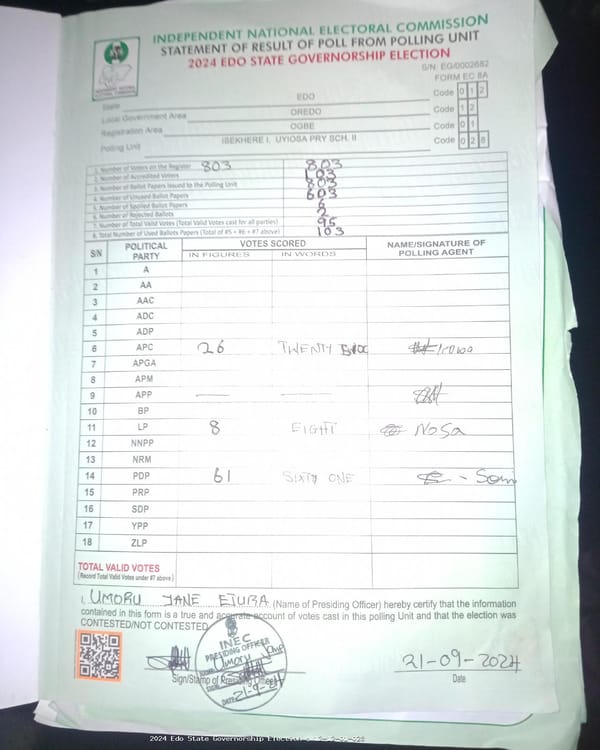 INDEPENDENT NATIONAL ELECTORAL COMMISSION
STATEMENT OF RESULT OF POLL FROM POLLING UNIT
2024 EDO STATE GOVERNORSHIP ELECTION
S/N: EG/0002682
FORM EC 8A
State EDO Code 0 1 2
Local Government Area OREDO Code 1 2
Registration Area OGBE Code 0 1
Polling Unit ISEKHERE I, UYIOSA PRY SCH. II Code 0 2 8
1. Number of Voters on the Register 803 803
2. Number of Accredited Voters 103
3. Number of Ballot Papers Issued to the Polling Unit 803
4. Number of Unused Ballot Papers
5. Number of Spoiled Ballot Papers 6
6. Number of Rejected Ballots 2
7. Number of Total Valid Votes (Total Valid Votes cast for all parties) 95
8. Total Number of Used Ballots Papers (Total of #5 + #6 + #7 above) 103
S/N POLITICAL PARTY VOTES SCORED NAME/SIGNATURE OF POLLING AGENT
IN FIGURES IN WORDS
1 A
2 AA
3 AAC
4 ADC
5 ADP
6 APC 26 TWENTY
7 APGA
8 APM
9 APP
10 BP
11 LP 8 EIGHT Nosa
12 NNPP
13 NRM
14 PDP 61 SIXTY ONE
15 PRP
16 SDP
17 YPP
18 ZLP
TOTAL VALID VOTES
(Record Total Valid Votes under #7 above)
I, UMORU JANE EJURA (Name of Presiding Officer) hereby certify that the information
contained in this form is a true and accurate account of votes cast in this polling Unit and that the election was
CONTESTED/NOT CONTESTED
INEC
PRESIDING OFFICER
Umoru
DATE 21-9-24
Sign/Stamp of Presiding Officer
21-09-2024
Date
2024 Edo State Governorship Election